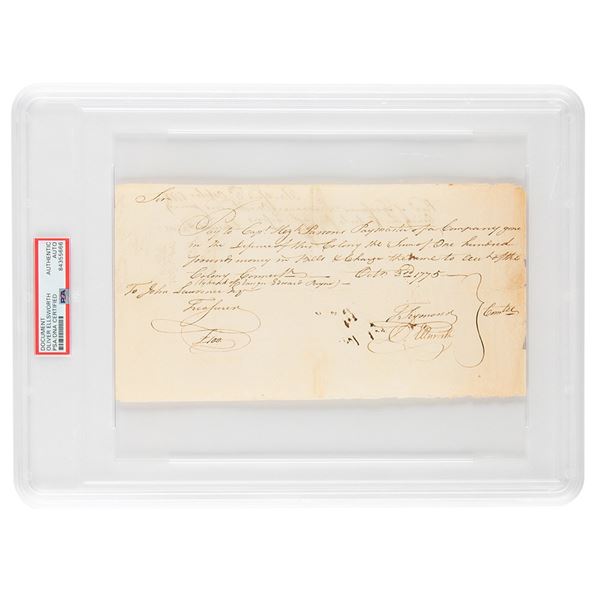 Sir
Pay to Capt Hez Parsons Paymaster of a Company gone
in the Defence of this Colony the Sum of One hundred
pounds money in Bills & Charge the same to acct of the
Colony Octr 3d 1775
To John Lawrence Esqr
Treasurer
£100
T Seymour
O Ellsworth
Comtee
DOCUMENT
OLIVER ELLSWORTH
PSA/DNA CERTIFIED
AUTHENTIC
AUTO
84355666
PSA